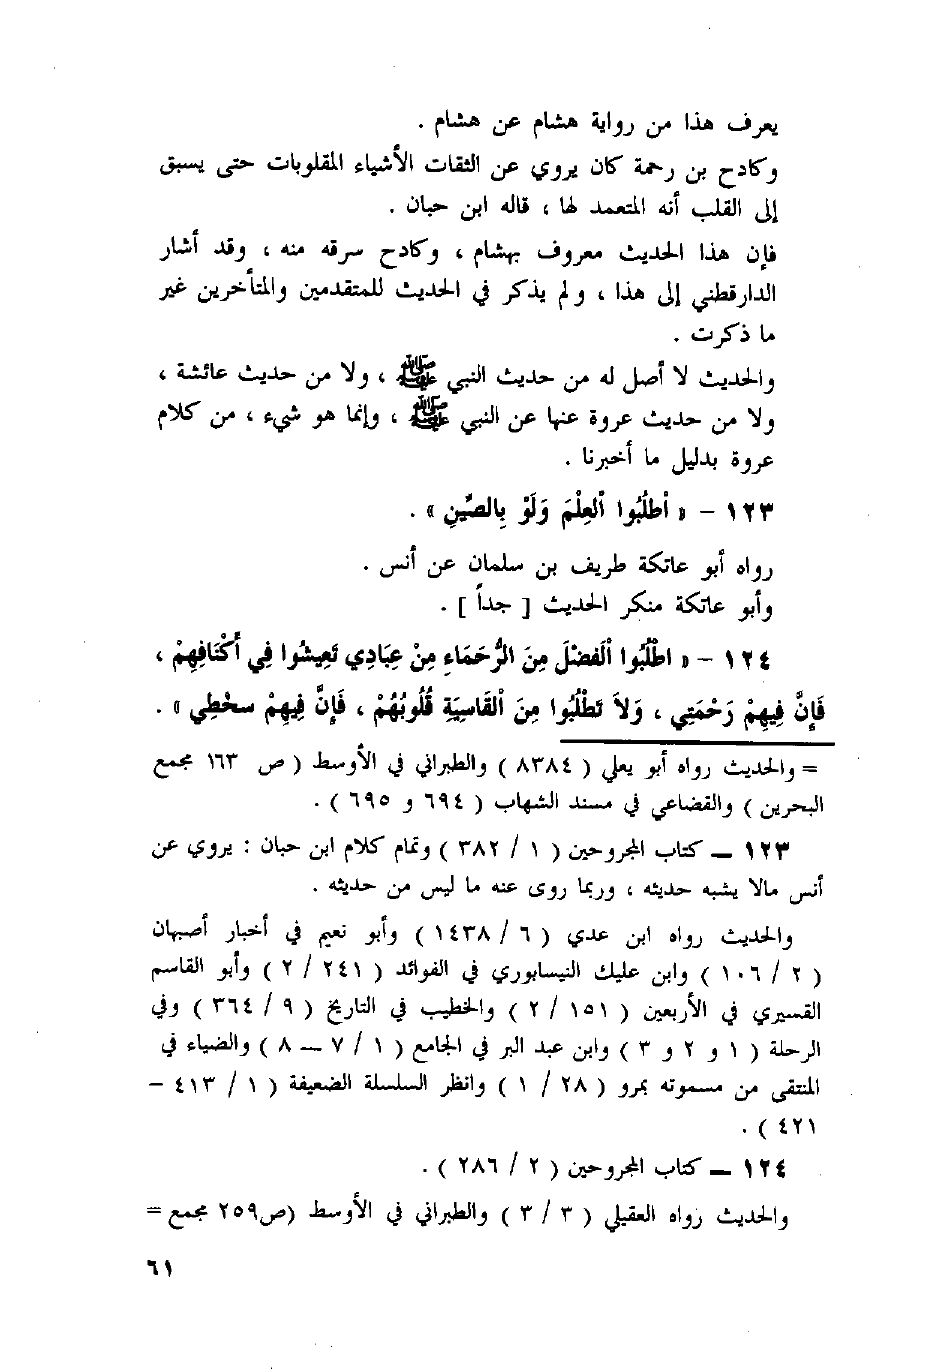 يعرف هذا من رواية هشام عن هشام .
وكادح بن رحمة كان يروي عن الثقات الأشياء المقلوبات حتى يسبق
إلى القلب أنه المتعمد لها ، قاله ابن حبان .
فإن هذا الحديث معروف بهشام ، وكادح سرقه منه ، وقد أشار
الدارقطني إلى هذا ، ولم يذكر في الحديث للمتقدمين والمتأخرين غير
ما ذكرت .
والحديث لا أصل له من حديث النبي ﷺ ، ولا من حديث عائشة ،
ولا من حديث عروة عنها عن النبي ﷺ ، وإنما هو شيء ، من كلام
عروة بدليل ما أخبرنا .
١٢٣ – « أطلُبُوا ألعِلْمَ وَلَوْ بِالصِّينِ » .
رواه أبو عاتكة طريف بن سلمان عن أنس .
وأبو عاتكة منكر الحديث [ جداً ] .
١٢٤ – « اطْلُبُوا ألفَضْلَ مِنَ الرُّحَمَاءِ مِنْ عِبَادِي تَعِيشُوا فِي أَكْنَافِهِمْ ،
فَإِنَّ فِيهِمْ رَحْمَتِي ، وَلاَ تَطْلُبُوا مِنَ ألقَاسِيَةِ قُلُوبُهُمْ ، فَإِنَّ فِيهِمْ سخْطِي » .
= والحديث رواه أبو يعلي ( ٨٣٨٤ ) والطبراني في الأوسط ( ص ١٦٣ مجمع
البحرين ) والقضاعي في مسند الشهاب ( ٦٩٤ و ٦٩٥ ) .
١٢٣ ــ كتاب المجروحين ( ١ / ٣٨٢ ) وتمام كلام ابن حبان : يروي عن
أنس مالا يشبه حديثه ، وربما روى عنه ما ليس من حديثه .
والحديث رواه ابن عدي ( ٦ / ١٤٣٨ ) وأبو نعيم في أخبار أصبهان
( ٢ / ١٠٦ ) وابن عليك النيسابوري في الفوائد ( ٢٤١ / ٢ ) وأبو القاسم
القسيري في الأربعين ( ١٥١ / ٢ ) والخطيب في التاريخ ( ٩ / ٣٦٤ ) وفي
الرحلة ( ١ و ٢ و ٣ ) وابن عبد البر في الجامع ( ١ / ٧ ــ ٨ ) والضياء في
المنتقى من مسموته بمرو ( ٢٨ / ١ ) وانظر السلسلة الضعيفة ( ١ / ٤١٣ –
٤٢١ ) .
١٢٤ ــ كتاب المجروحين ( ٢ / ٢٨٦ ) .
والحديث رواه العقيلي ( ٣ / ٣ ) والطبراني في الأوسط (ص٢٥٩ مجمع =
٦١